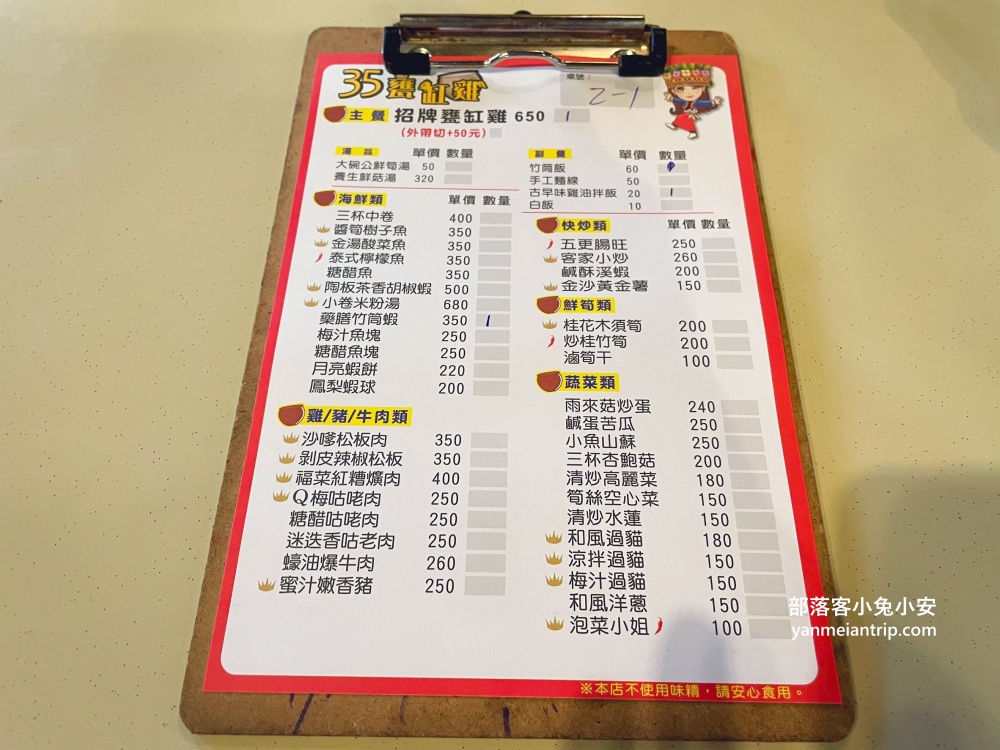 35甕缸雞
桌號：
2-1
主餐 招牌甕缸雞 650 1
(外帶切+50元)
湯品 單價 數量
大碗公鮮筍湯 50
養生鮮菇湯 320
副餐 單價 數量
竹筒飯 60
手工麵線 50
古早味雞油拌飯 20 1
白飯 10
海鮮類 單價 數量
三杯中卷 400
醬筍樹子魚 350
金湯酸菜魚 350
泰式檸檬魚 350
糖醋魚 350
陶板茶香胡椒蝦 500
小卷米粉湯 680
藥膳竹筒蝦 350 1
梅汁魚塊 250
糖醋魚塊 250
月亮蝦餅 220
鳳梨蝦球 200
雞/豬/牛肉類
沙嗲松板肉 350
剝皮辣椒松板 350
福菜紅糟爌肉 400
Q梅咕咾肉 250
糖醋咕咾肉 250
迷迭香咕老肉 250
蠔油爆牛肉 260
蜜汁嫩香豬 250
快炒類 單價 數量
五更腸旺 250
客家小炒 260
鹹酥溪蝦 200
金沙黃金薯 150
鮮筍類
桂花木須筍 200
炒桂竹筍 200
滷筍干 100
蔬菜類
雨來菇炒蛋 240
鹹蛋苦瓜 250
小魚山蘇 250
三杯杏鮑菇 200
清炒高麗菜 180
筍絲空心菜 150
清炒水蓮 150
和風過貓 180
涼拌過貓 150
梅汁過貓 150
和風洋蔥 150
泡菜小姐 100
※本店不使用味精，請安心食用。
部落客小兔小安
yanmeiantrip.com